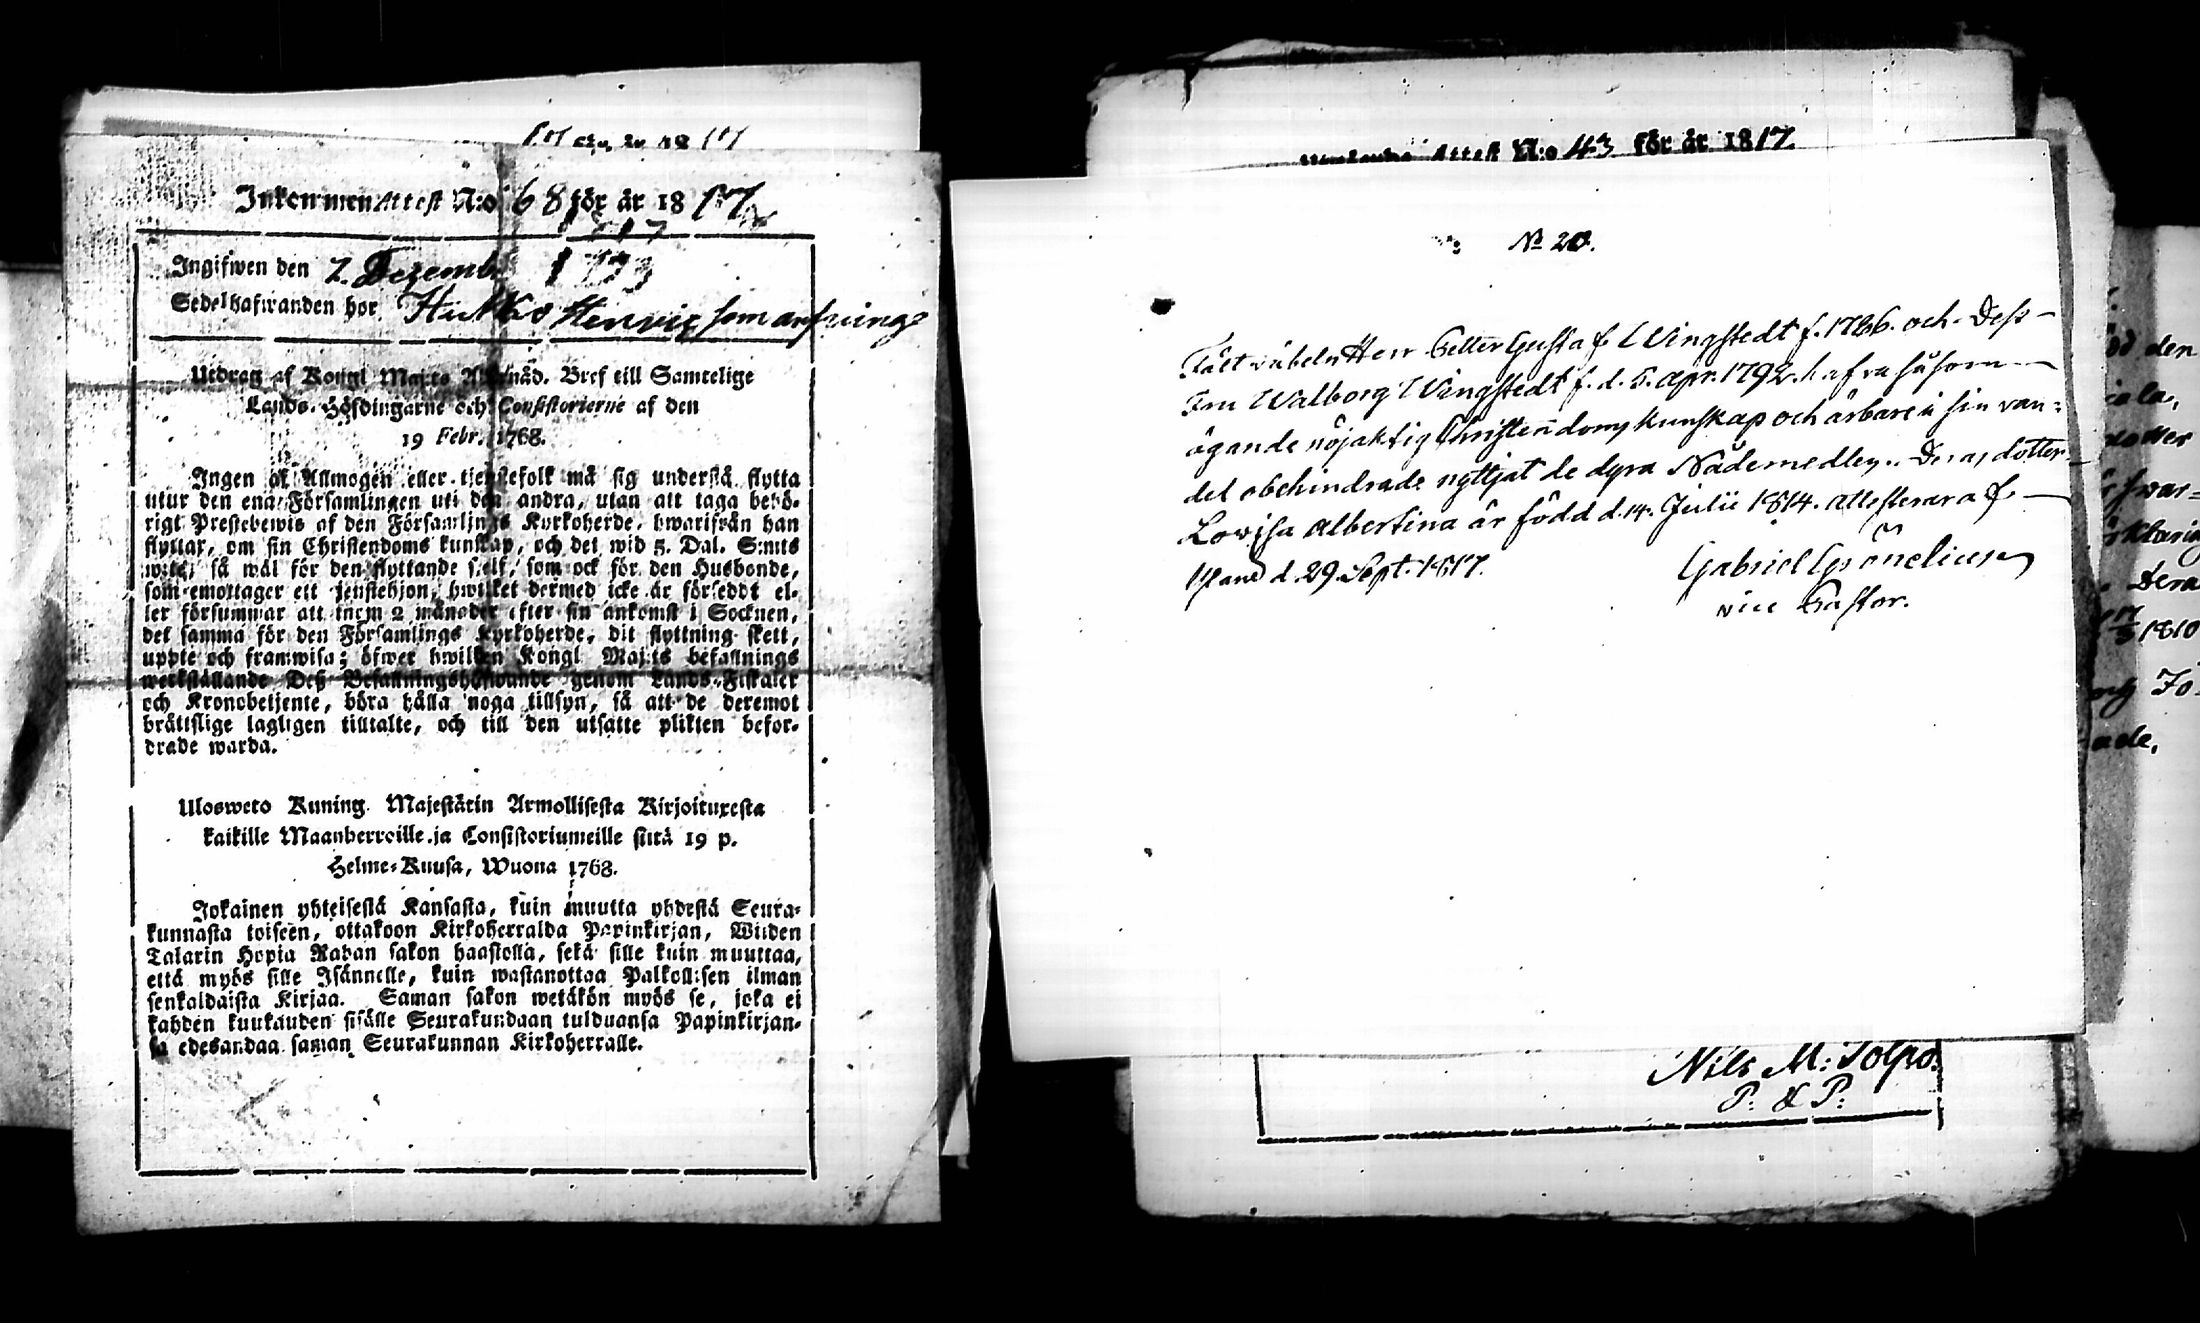 för år 1817
Inkommen Attest N:o 68 för år 1817
Ingifwen den 7. Dezemb
Sedelhafwanden bor Hukko Henric som
Utdrag af Kongl Maj:ts Allernåd. Bref till Samtelige
Lands-Höfdingarne och Consistorierne af den
19 Febr. 1768.
Ingen af Allmogen eller tjenstefolk må sig understå flytta
utur den ena Församlingen uti den andra, utan att taga behö-
rigt Prestebewis af den Församlings Kyrkoherde, hwarifrån han
flyttar, om sin Christendoms kunskap, och det wid 5. Dal. S:mts
wite, så wäl för den flyttande sielf, som ock för den Husbonde,
som emottager ett tjenstehjon, hwilket dermed icke är förseddt el-
ler försummar att inom 2 månader efter sin ankomst i Socknen,
det samma för den Församlings Kyrkoherde, dit flyttning skett,
uppte och framwisa; öfwer hwilken Kongl Maj:ts befallnings
werkställande Deß Befallningshafwande genom Lands-Fiskaler
och Kronobetjente, böra hålla noga tillsyn, så att de deremot
brättslige lagligen tilltalte, och till den utsatte plikten befor-
drade warda.
Ulosweto Kuning. Majestätin Armollisesta Kirjoituxesta
kaikille Maanherroille ja Consistoriumeille siitä 19 p.
Helme-Kuusa, Wuona 1768.
Jokainen yhteisestä Kansasta, kuin muutta yhdestä Seura-
kunnasta toiseen, ottakoon Kirkoherralda Papinkirjan, Wiiden
Talarin Hopia Rahan sakon haastolla, sekä sille kuin muuttaa,
että myös sille Isännelle, kuin wastanottaa Palkollisen ilman
senkaldaista Kirjaa. Saman sakon wetäkön myös se, joka ei
kahden kuukauden sisälle Seurakundaan tulduansa Papinkirjan-
sa edesandaa saman Seurakunnan Kirkoherralle.
Attest N:o 43 för år 1817.
No 20.
Herr Petter Gustaf Wingstedt f. 1786. och Dess
Fru Walborg Wingstedt f. d. 5. Apr. 1792. hafva såsom
ägande nöjaktig Christendoms kunskap och ärbare i sin van-
del obehindrade nyttjat de dyra Nådemedlen. Deras dotter
Lovisa Albertina är född d. 14. Julii 1814. attesterar af
d. 29. Sept. 1817. Gabriel Grönelius
vice Pastor.
Nils M: Tolpo.
P: & P:
den
1810